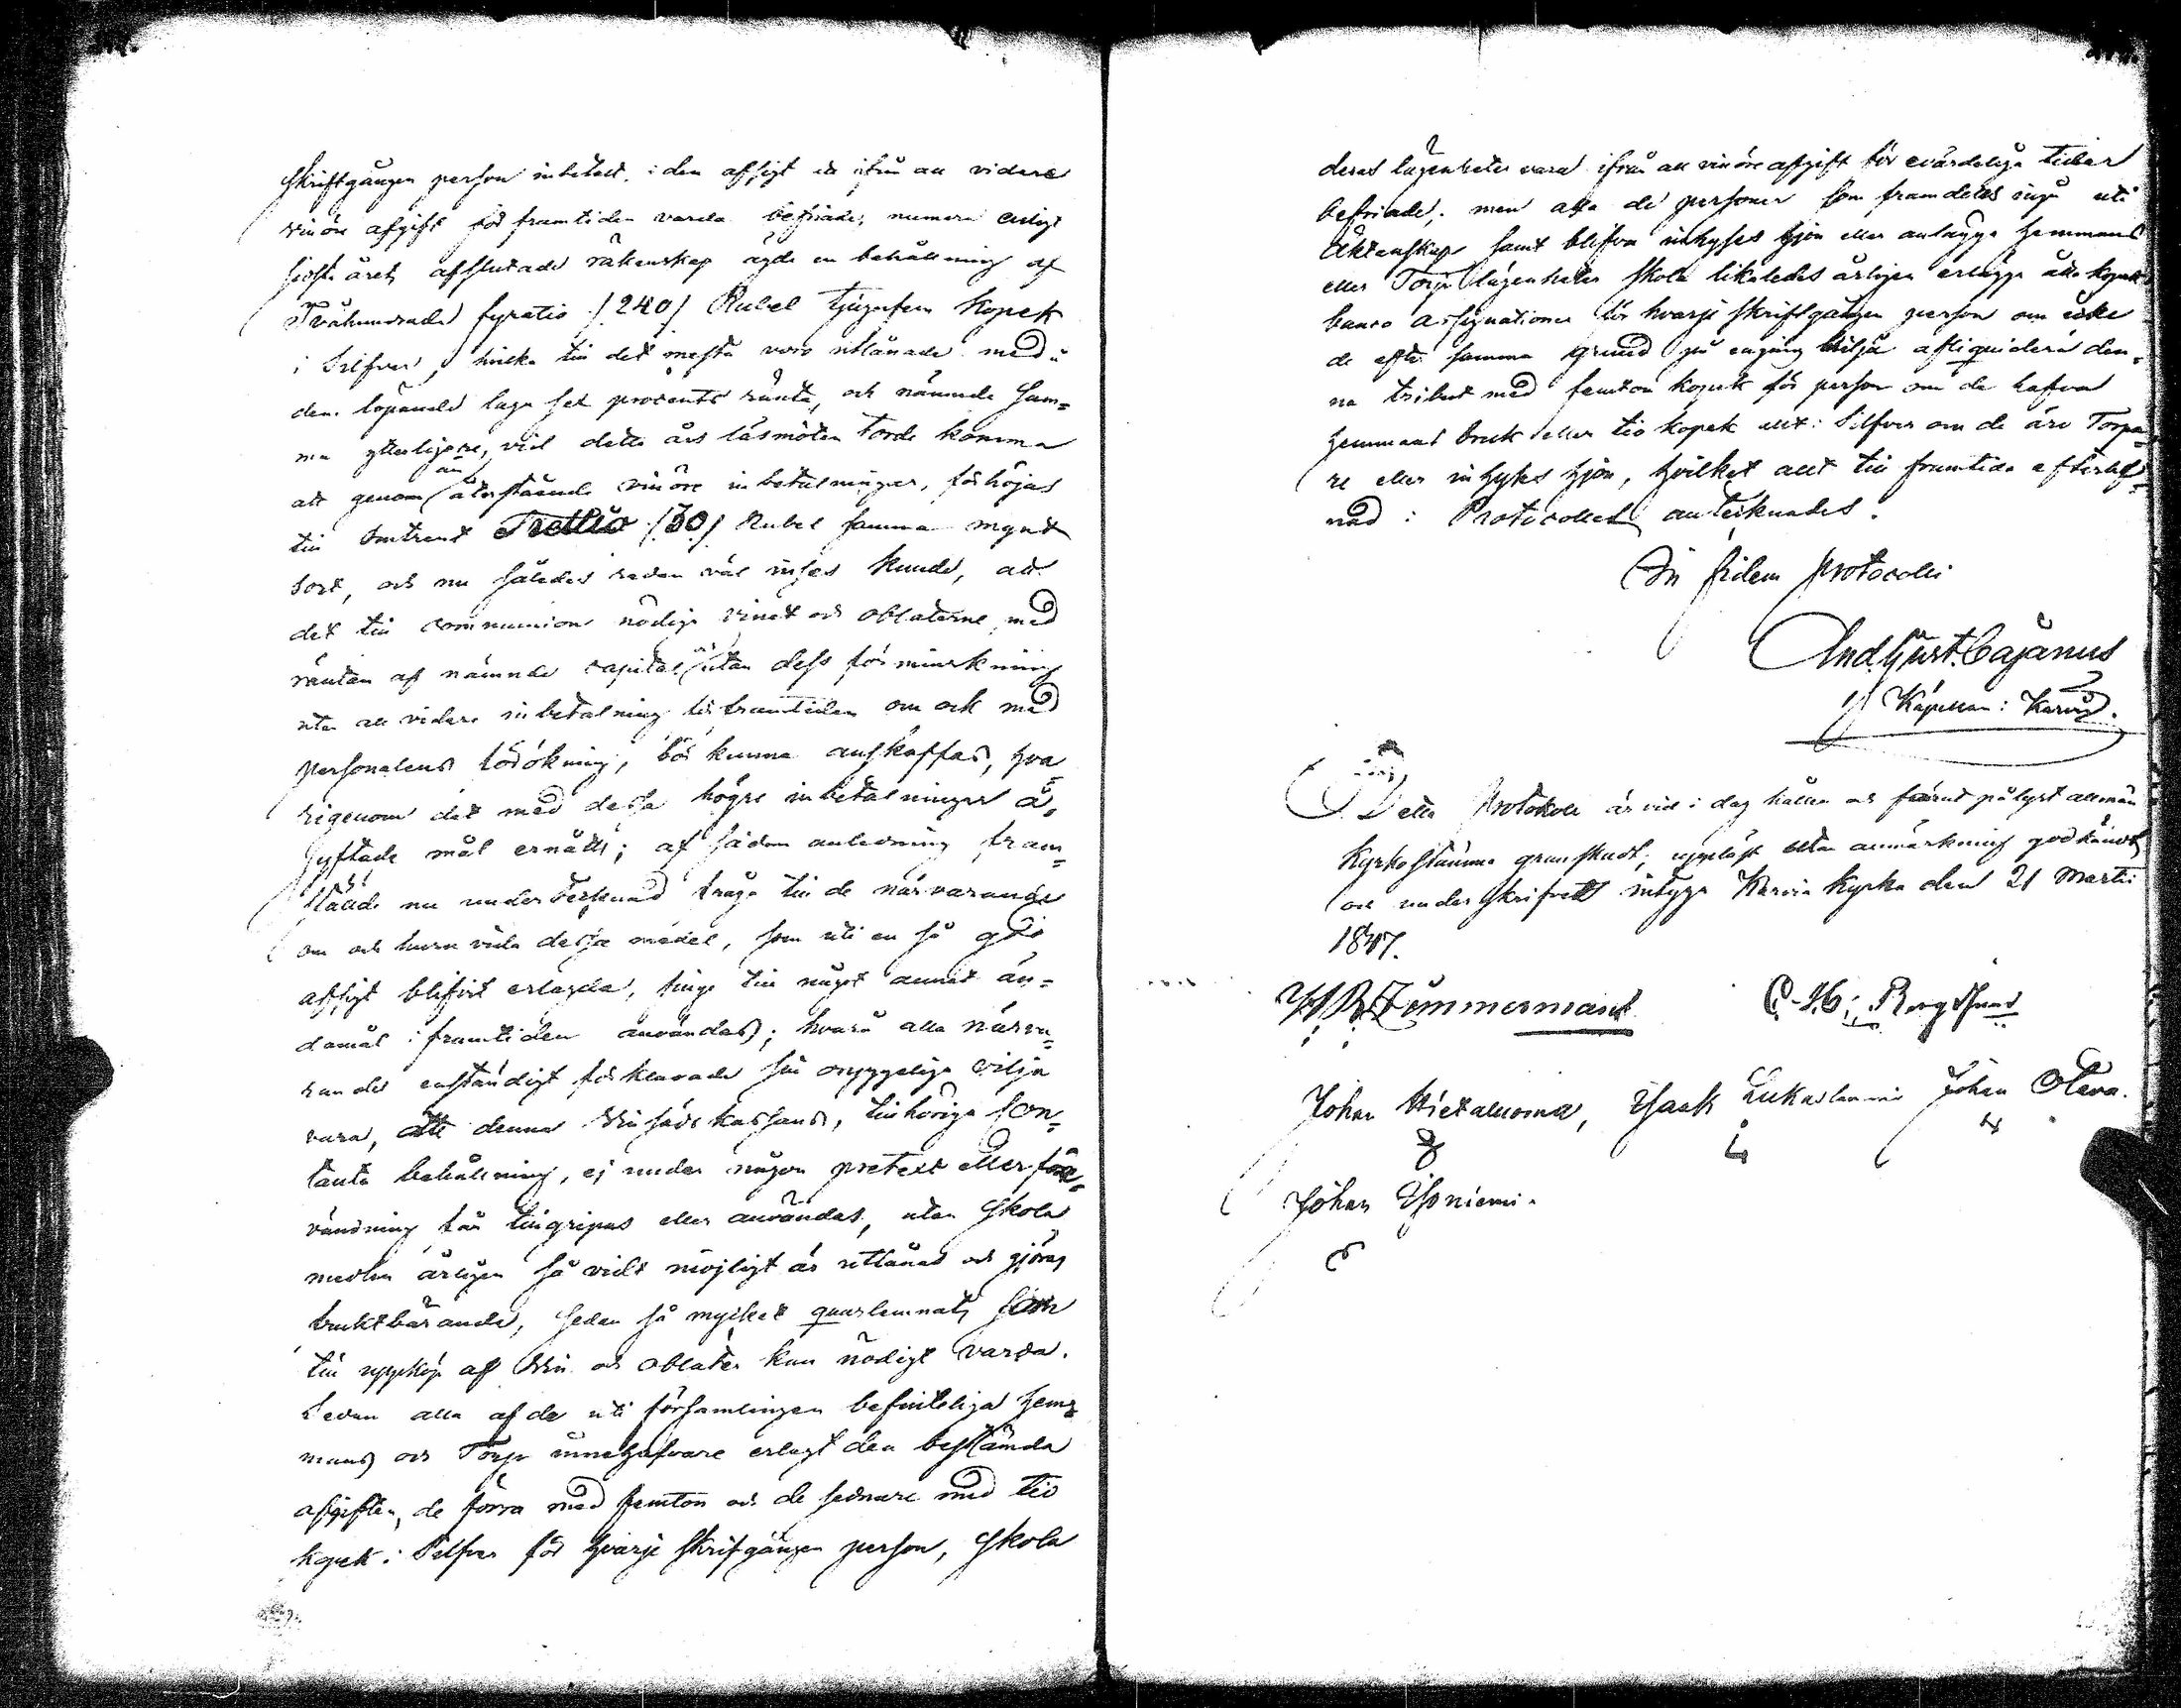 skriftgången person inbetalt, i den afsigt at ifrån all vidare
vinöre afgift för framtiden varda befriade, numera enligt
sidsta årets afslutade räkenskap ägde en behållning af
Tvåhundrade fyratio /240/ Rubel tjugufem Kopek
i Silfver, hvilka till det mesta voro utlånade med
den löpande laga sex procents ränta, och nämnde sum=
ma ytterligare, vid detta års läsmöten torde komma
att genom än återstående vinöre inbetalningar, förhöjas
till omtrent Trettio /30/ Rubel samma mynt
sort, och nu således redan väl inses kunde, att
det till communion nödiga vinet och oblaterne med
räntan af nämnde capital utan dess förminskning
utan all vidare inbetalning för framtiden om ock med
personalens förökning, bör kunna anskaffas, hva=
rigenom det med dessa högre inbetalningar å=
syftade mål ernåtts; af sådan anledning fram=
stälde nu undertecknad fråga till de närvarande
om och huru vida dessa medel, som uti en så god
afsigt blifvit erlagda, finge till något annat än=
damål i framtiden användas; hvarå alla närva=
rande enständigt förklarade sin oryggeliga vilja
vara, att denna Vinsäds kassans, tillhöriga con=
tanta behållning, ej under någon pretext eller före=
vändning får tillgripas eller användas, utan skola
medlen årligen så vidt möjligt är utlånas och göras
fruktbärande, sedan så mycket quarlemnats som
till uppköp af Vin och oblater kan nödigt varda.
Sedan alla af de uti församlingen befinteliga hem=
mans och Torp innehafvare erlagt den bestämda
afgiften, de förra med femton och de sednare med tio
kopek i Silfver för hvarje skriftgången person, skola
deras lägenheter vara ifrån all vinöre afgift för evärdeliga tider
befriade; men alla de personer som framdeles ingå uti
Äktenskap samt blifva inhyses hjon eller anlägga hemmans
eller Torp lägenheter skola likaledes årligen erlägga åtta kopek
banco assignationer för hvarje skriftgången person om icke
de efter samma grund på engång vilja afliquidera den=
na tribut med femton kopek för person om de hafva
hemmans bruk eller tio kopek allt i Silfver om de äro Torpa=
re eller inhyses hjon, hvilket allt till framtida efterlef=
nad i Protocollet antecknades.
In fidem protocolli
And. Gust. Cajanus
Kapellan i Karvia.
Detta Protokoll är vid i dag hållen och förut pålyst allmän
Kyrkostämma granskadt, uppläst utan anmärkning godkändt
och underskrifvet intyga Karvia Kyrka den 21 Martii
1847.
Zimmermant
Johan Hietaluoma, Isaak Johan Olava.
Johan Isoniemi.